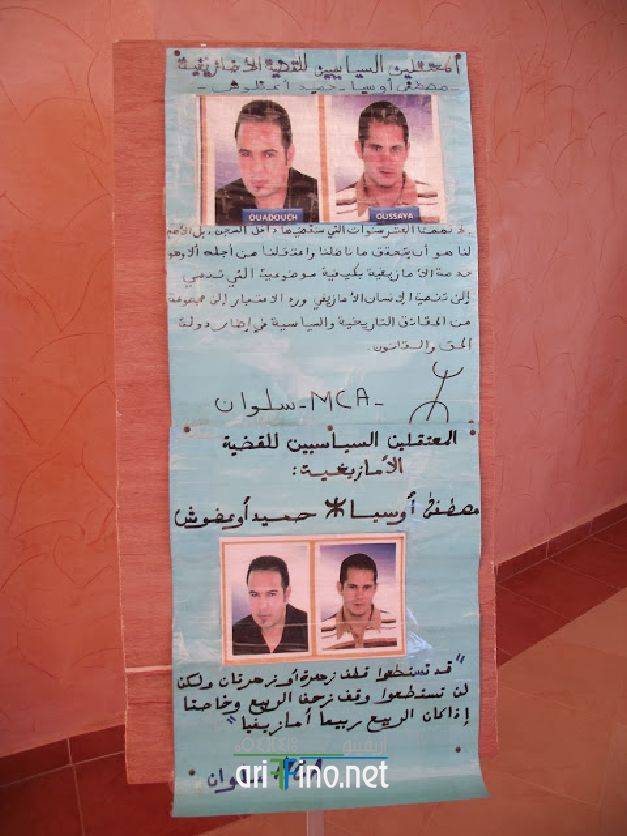 المعتقلين السياسيين للقضية الأمازيغية
- مصطفى أوسيا - حميد أعطوش -
OUADOUCH
OUSSAYA
لا تهمنا العشر سنوات التي سنقضيها داخل السجن، بل الأهم
لنا هو أن يتحقق ما ناضلنا واعتقلنا من أجله ألا وهو
خدمة الأمازيغية بكيفية موضوعية التي تسعى
إلى تنمية الإنسان الأمازيغي ورد الاعتبار إلى مجموعة
من الحقائق التاريخية والسياسية في إطار دولة
الحق والقانون.
سلوان - MCA -
المعتقلين السياسيين للقضية
الأمازيغية:
مصطفى أوسيا ⵣ حميد أوعضوش
"قد تستطعوا قطف زهرة أو زهرتان ولكن
لن تستطعوا وقف زحف الربيع وخاصتا
إذا كان الربيع ربيعا أمازيغيا"
أريفينو
سلوان
arifino.net